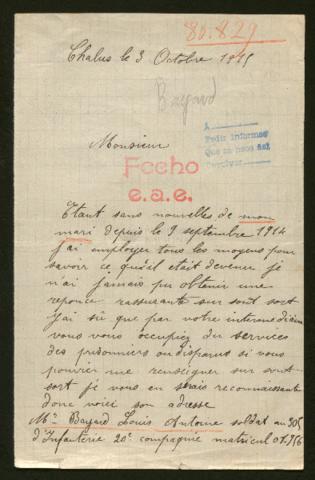 80.829
Chalus le 3 Octobre 1915
Bayard
Monsieur
A
Pedir informes
Que se hace así
Fecho
e.a.e.
Etant sans nouvelles de mon
mari depuis le 9 septembre 1914
j'ai employer tous les moyens pour
savoir ce qu'il etait devenu je
n'ai jamais pu obtenir une
reponce rassurante sur sont sort
j'ai sû que par votre intermediaire
vous vous occupiez du services
des prisonniers ou disparus si vous
pouvier me renseigner sur sont
sort je vous en serais reconnaissante
donc voici son adresse
Mr Bayard Louis Antoine soldat au 305
d'Infanterie 20e compagnie matricul